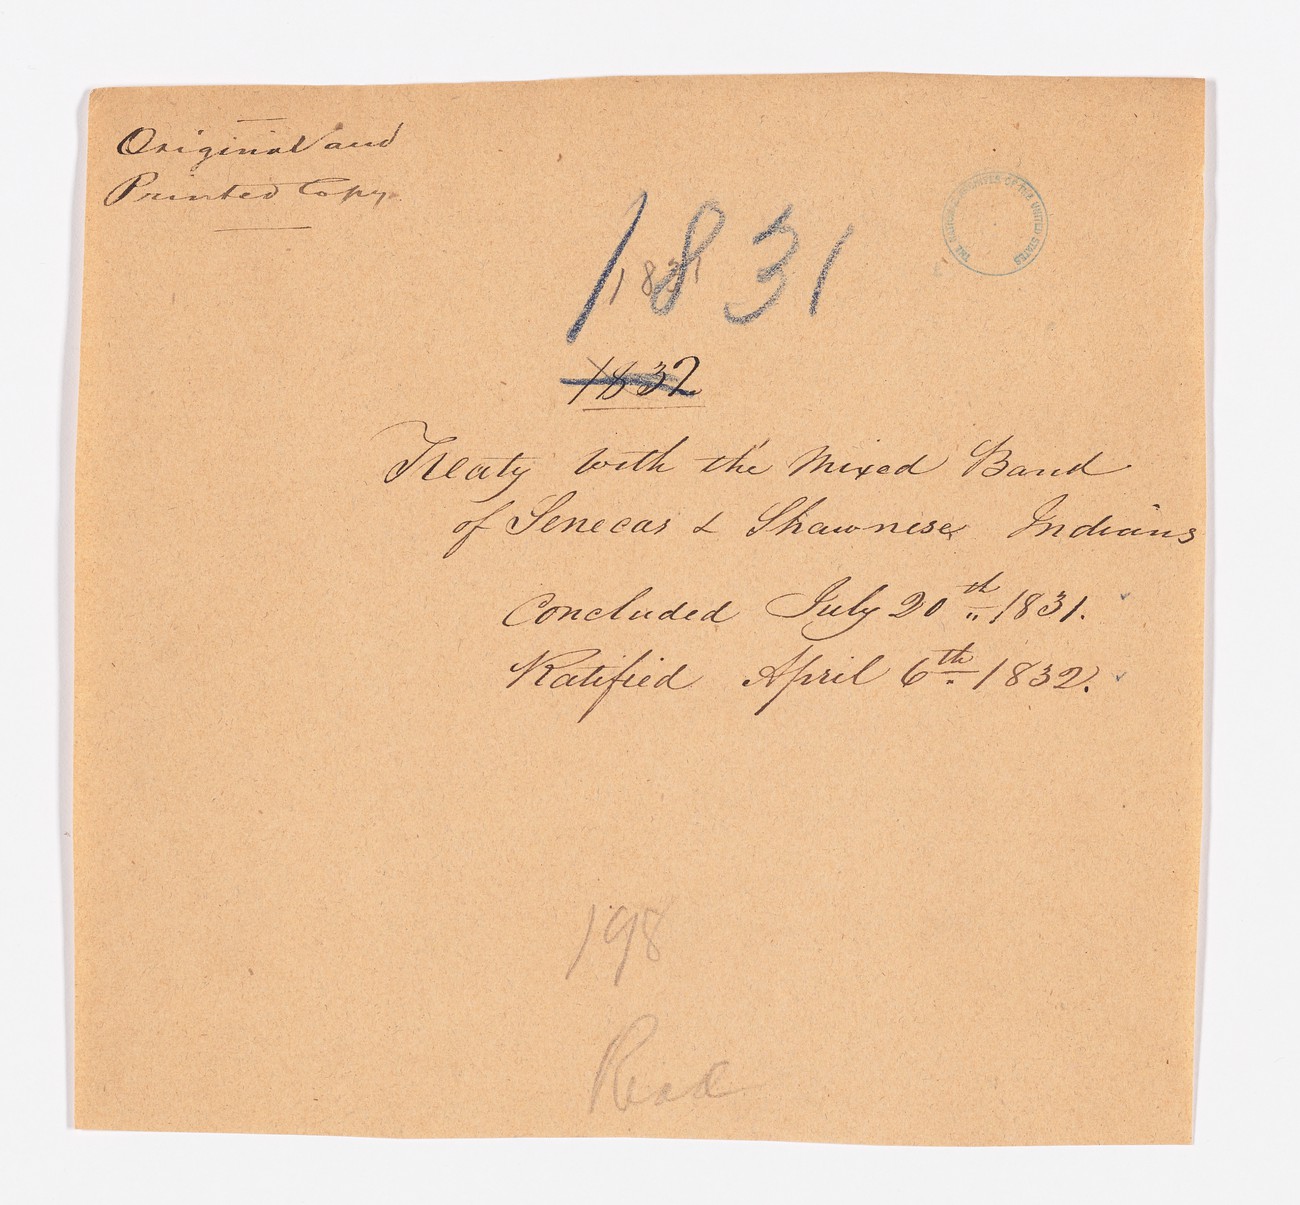 Original and
Printed Copy
THE NATIONAL ARCHIVES OF THE UNITED STATES
1831
1831
1832
Treaty with the Mixed Band
of Senecas & Shawnese Indians
Concluded July 20th 1831.
Ratified April 6th 1832.
198
Read